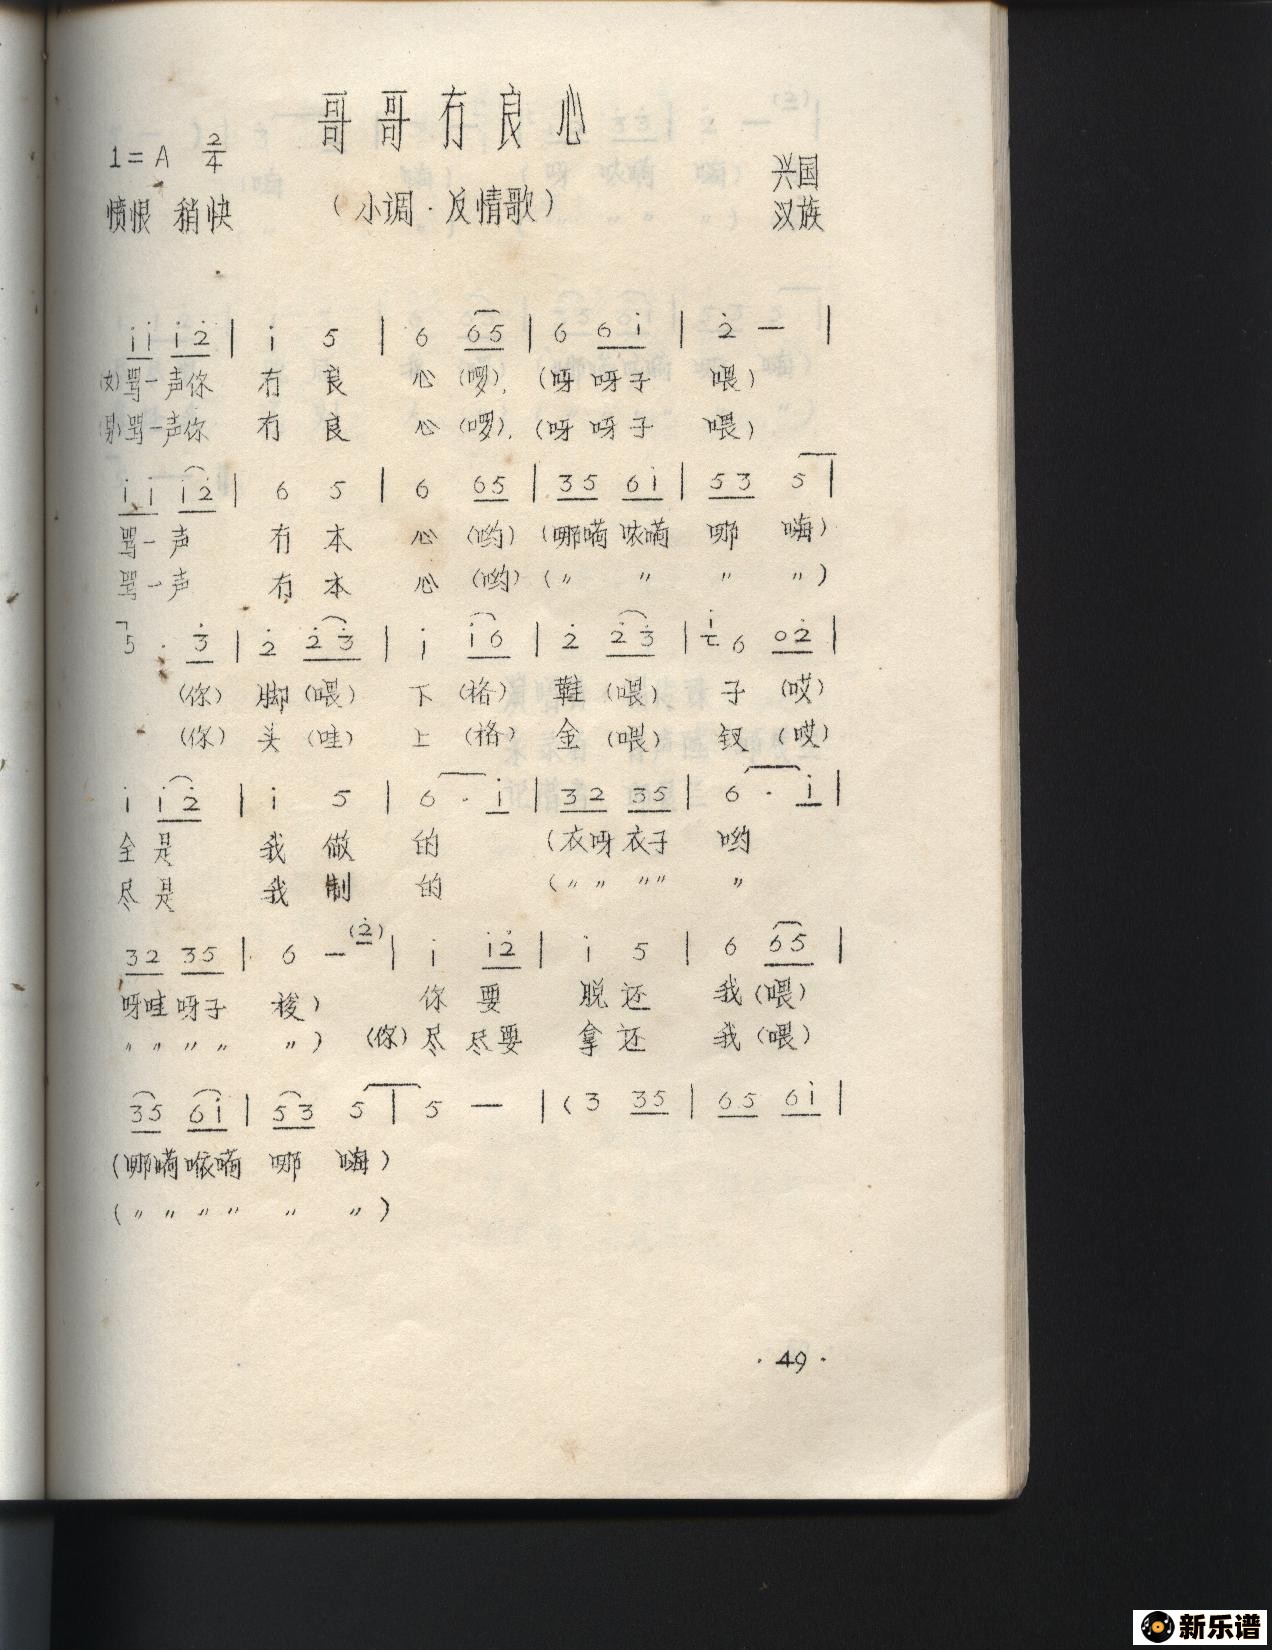 哥哥冇良心
1=A 2/4
兴国
愤恨 稍快
（小调·反情歌）
汉族
i i i 2̇ | i 5 | 6 6 5 | 6 6 i | 2̇ — |
(女)骂一声你 冇 良 心 (啰), (呀 呀子 喂)
(男)骂一声你 冇 良 心 (啰), (呀 呀子 喂)
i i i 2̇ | 6 5 | 6 6 5 | 3 5 6 i | 5 3 5 |
骂一声 冇 本 心 (哟) (哪嗬咳嗬 哪 嗨)
骂一声 冇 本 心 (哟) (〃 〃 〃 〃)
5 · 3̇ | 2̇ 2̇ 3̇ | i i 6 | 2̇ 2̇ 3̇ | i 6 0 2̇ |
(你) 脚 (喂) 下 (格) 鞋 (喂) 子 (哎)
(你) 头 (哇) 上 (格) 金 (喂) 钗 (哎)
i i 2̇ | i 5 | 6 · i | 3 2 3 5 | 6 · i |
全是 我 做 的 (衣呀衣子 哟
尽是 我 制 的 (〃 〃 〃 〃 〃
3 2 3 5 | 6 — (2̇) | i i 2̇ | i 5 | 6 6 5 |
呀哇呀子 梭) 你 要 脱 还 我 (喂)
〃 〃 〃 〃 〃) (你) 尽 尽要 拿 还 我 (喂)
3 5 6 i | 5 3 5 | 5 — | (3 3 5 | 6 5 6 i |
(哪嗬咳嗬 哪 嗨)
(〃 〃 〃 〃 〃 〃)
·49·
新乐谱